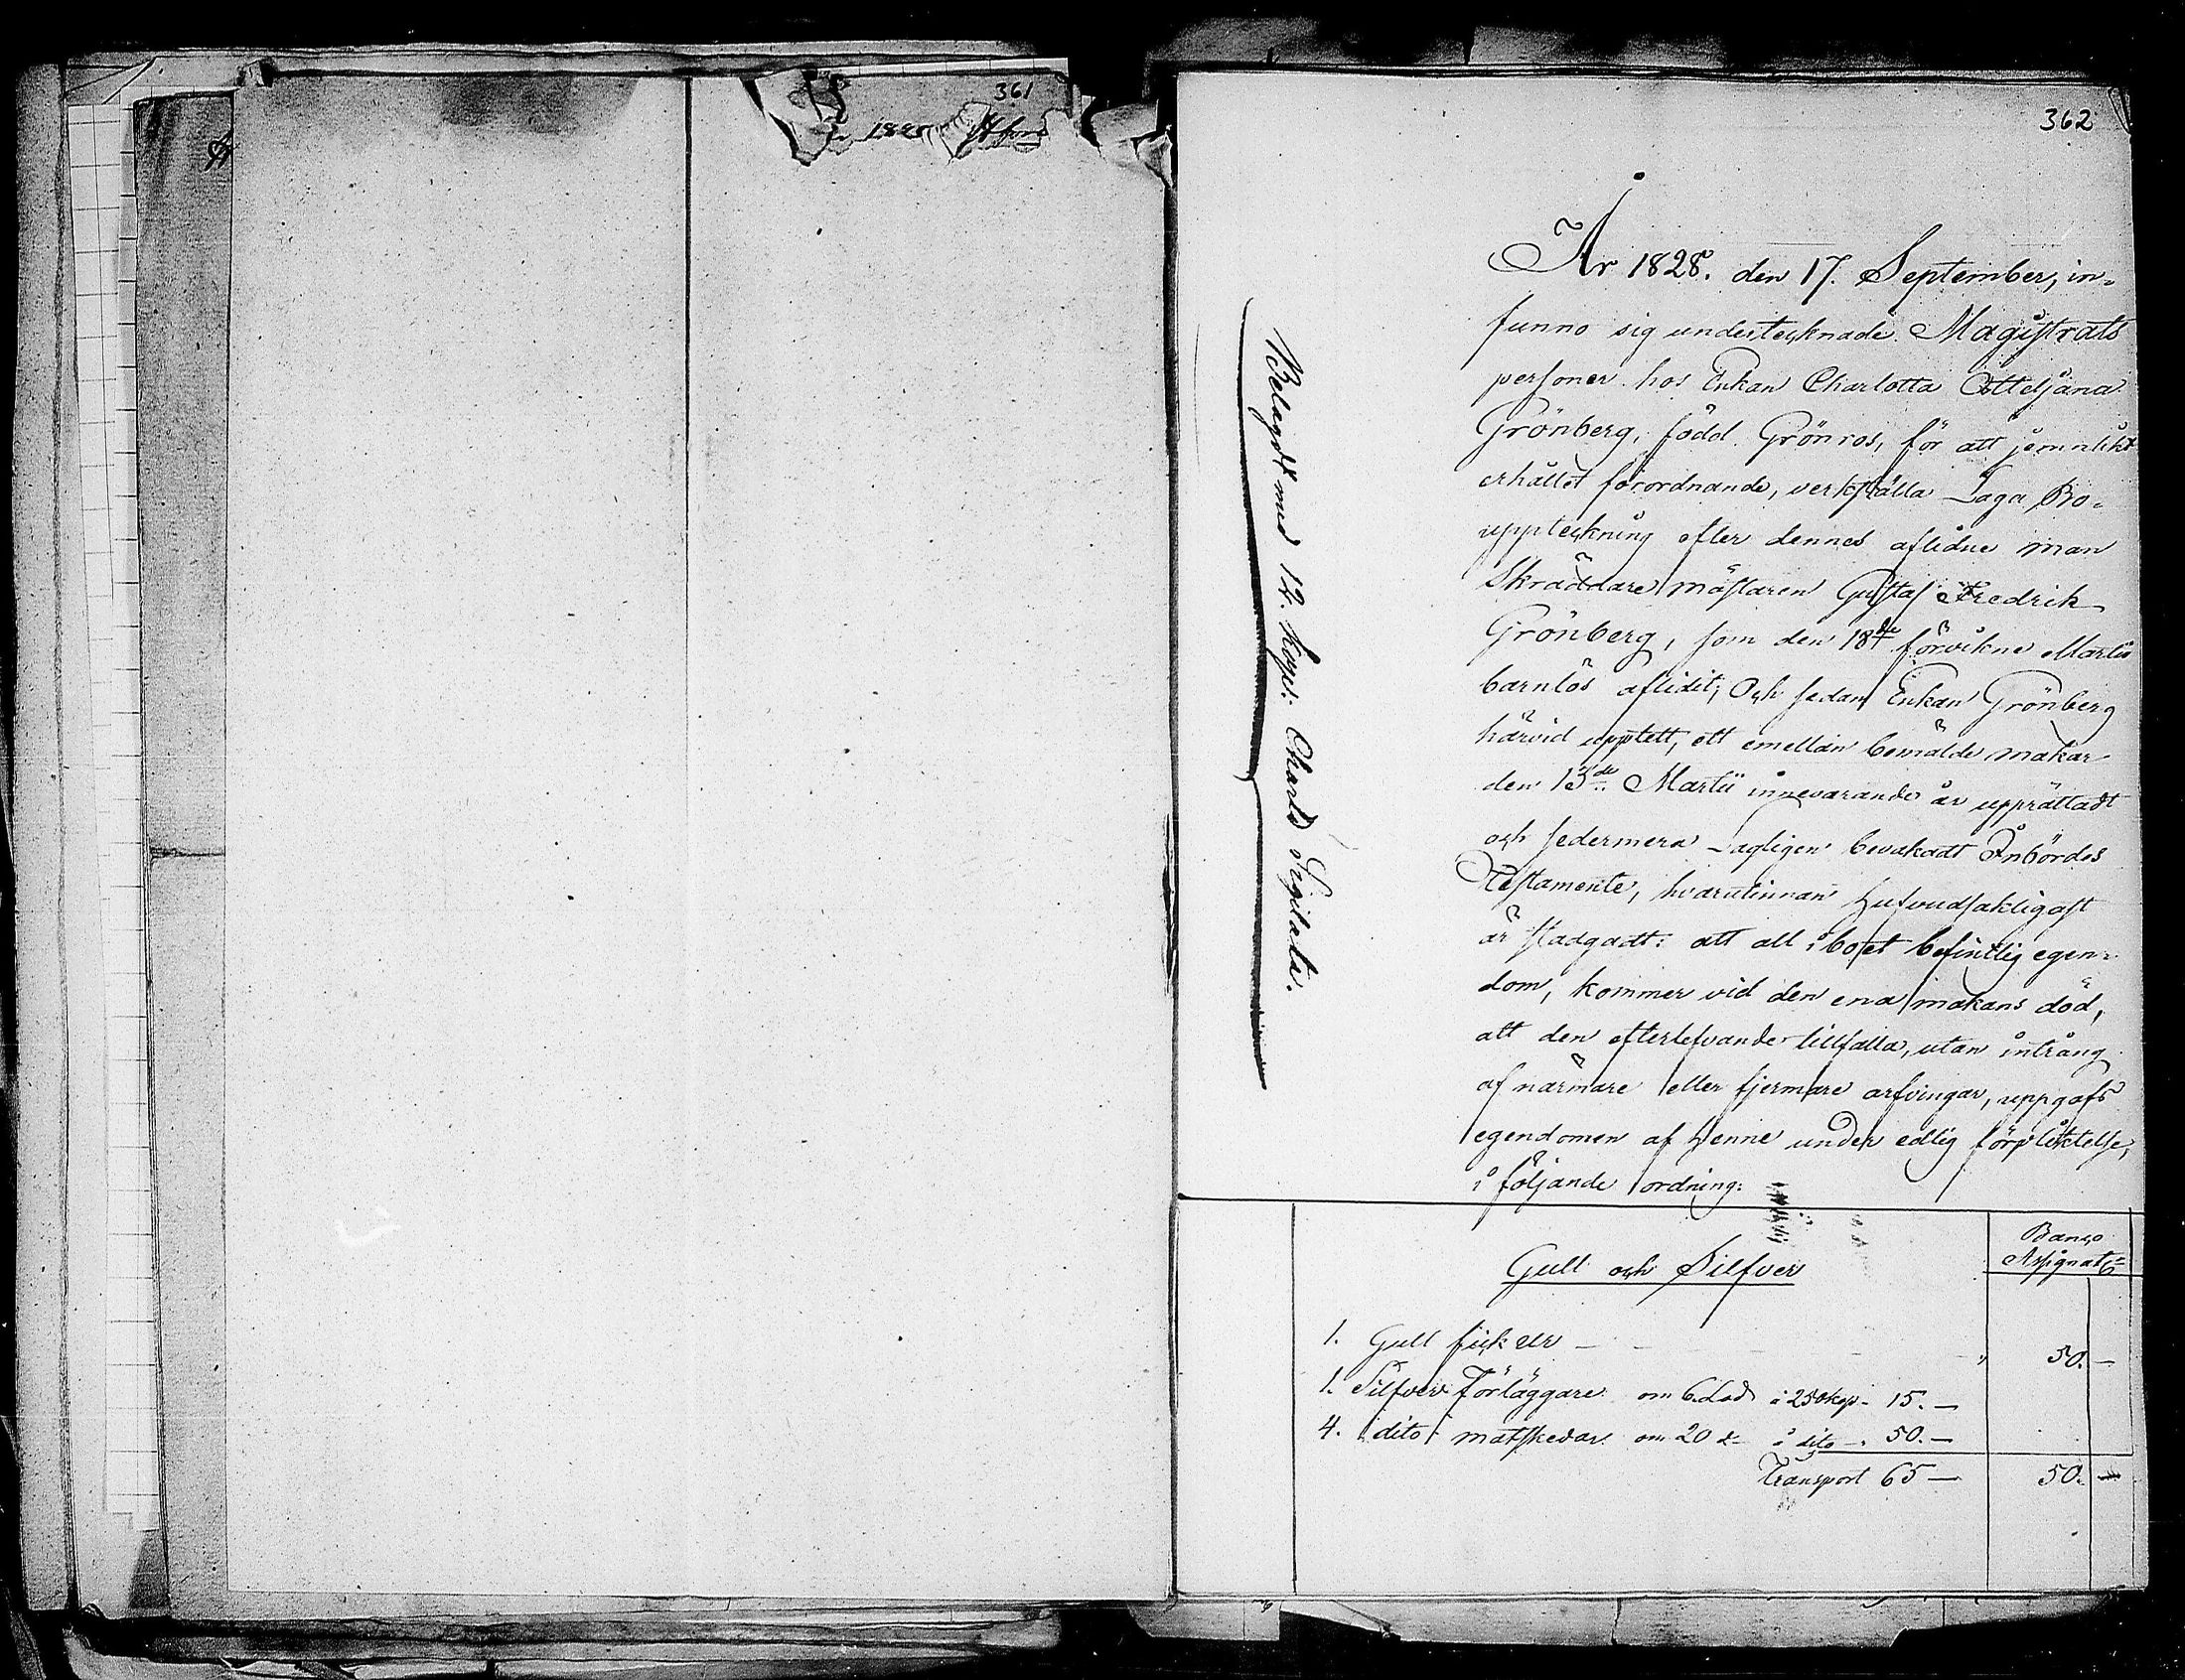 361
362
År 1828. den 17. September, in-
funno sig undertecknade Magistrats
personer hos Enkan Charlotta Otteljana
Grönberg, född Grönros, för att jemnlikt
erhållet förordnande, verkställa Laga Bo-
uppteckning efter dennes aflidne man
Skräddare mästaren Gustaf Fredrik
Grönberg, som den 18de förvikne Martii
barnlös aflidit; Och sedan Enkan Grönberg
härvid upptett, ett emellan bemälde makar
den 13de Martii innevarande år upprättadt
och sedermera Lagligen bevakadt Inbördes
Testamente, hvarutinnan hufvudsakligast
är stadgadt: att all i boet befintlig egen-
dom, kommer vid den ena makans död,
att den efterlefvande tillfalla, utan intrång
af närmare eller fjermare arfvingar, uppgafs
egendomen af Henne under edlig förpliktelse,
i följande ordning:
Belagdt med 12. kop: Charta Sigilata.
Banco
Assignat
Gull och Silfver
1. Gull fick ur — 50. —
1. Silfver Förläggare om 6 Lod à 250 kop - 15. —
4. dito matskedar om 20 d à dito - 50. —
Transport 65 — 50. —